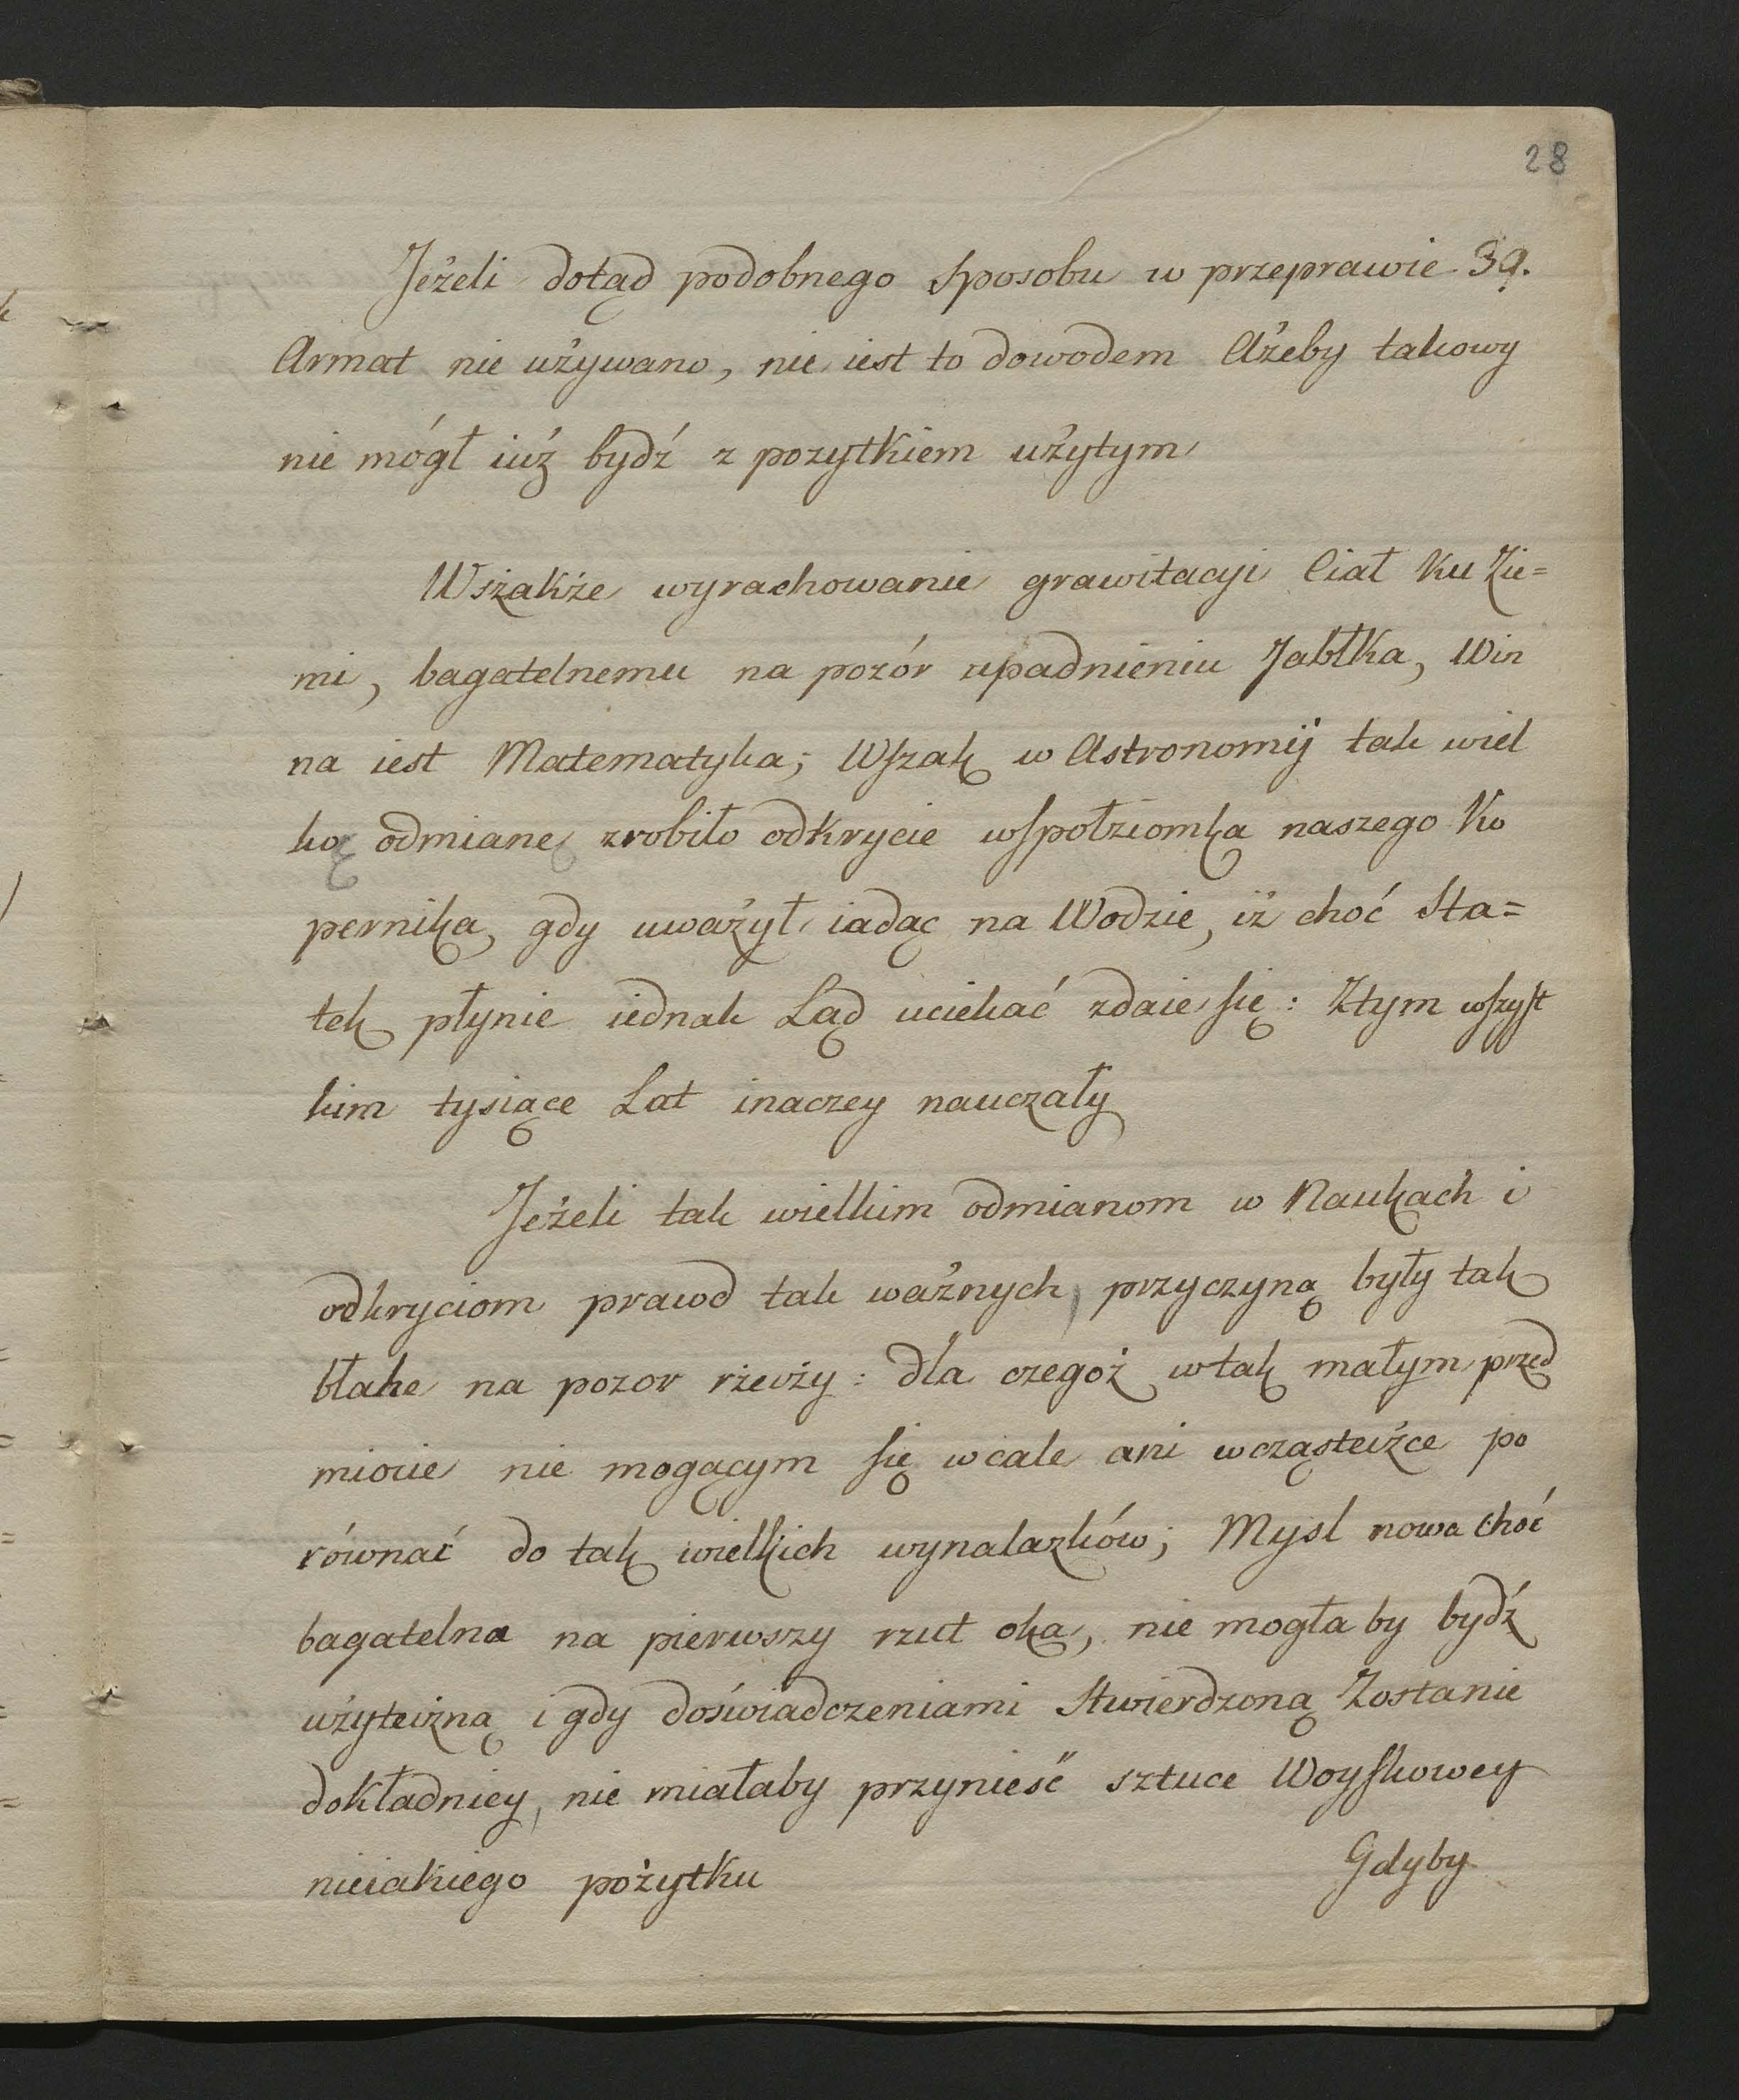 28
Jeżeli dotąd podobnego sposobu w przeprawie 39.
Armat nie używano, nie iest to dowodem Ażeby takowy
nie mógł iuż bydź z pozytkiem użytym
Wszakże wyrachowanie grawitacyi Ciał ku Zie=
mi, bagatelnemu na pozór upadnieniu Jabłka, Win
na iest Matematyka; Wszak w Astronomij tak wiel
ką odmianę zrobiło odkrycie wspołziomka naszego Ko
pernika, gdy uważył iadąc na Wodzie, iż choć Sta=
tek płynie iednak Ląd uciekać zdaie się: Ztym wszyst
kim tysiące Lat inaczey nauczały
Jeżeli tak wielkim odmianom w Naukach i
odkryciom prawd tak ważnych, przyczyną były tak
błahe na pozor rzeczy: dla czegoż w tak małym przed
miocie nie mogącym się wcale ani wcząsteczce po
równać do tak wielkich wynalazków; Mysl nowa choć
bagatelna na pierwszy rzut oka, nie mogła by bydź
użyteczną i gdy doświadczeniami Stwierdzoną Zostanie
dokładniey, nie miałaby przynieść sztuce Woyskowey
nieiakiego pożytku
Gdyby